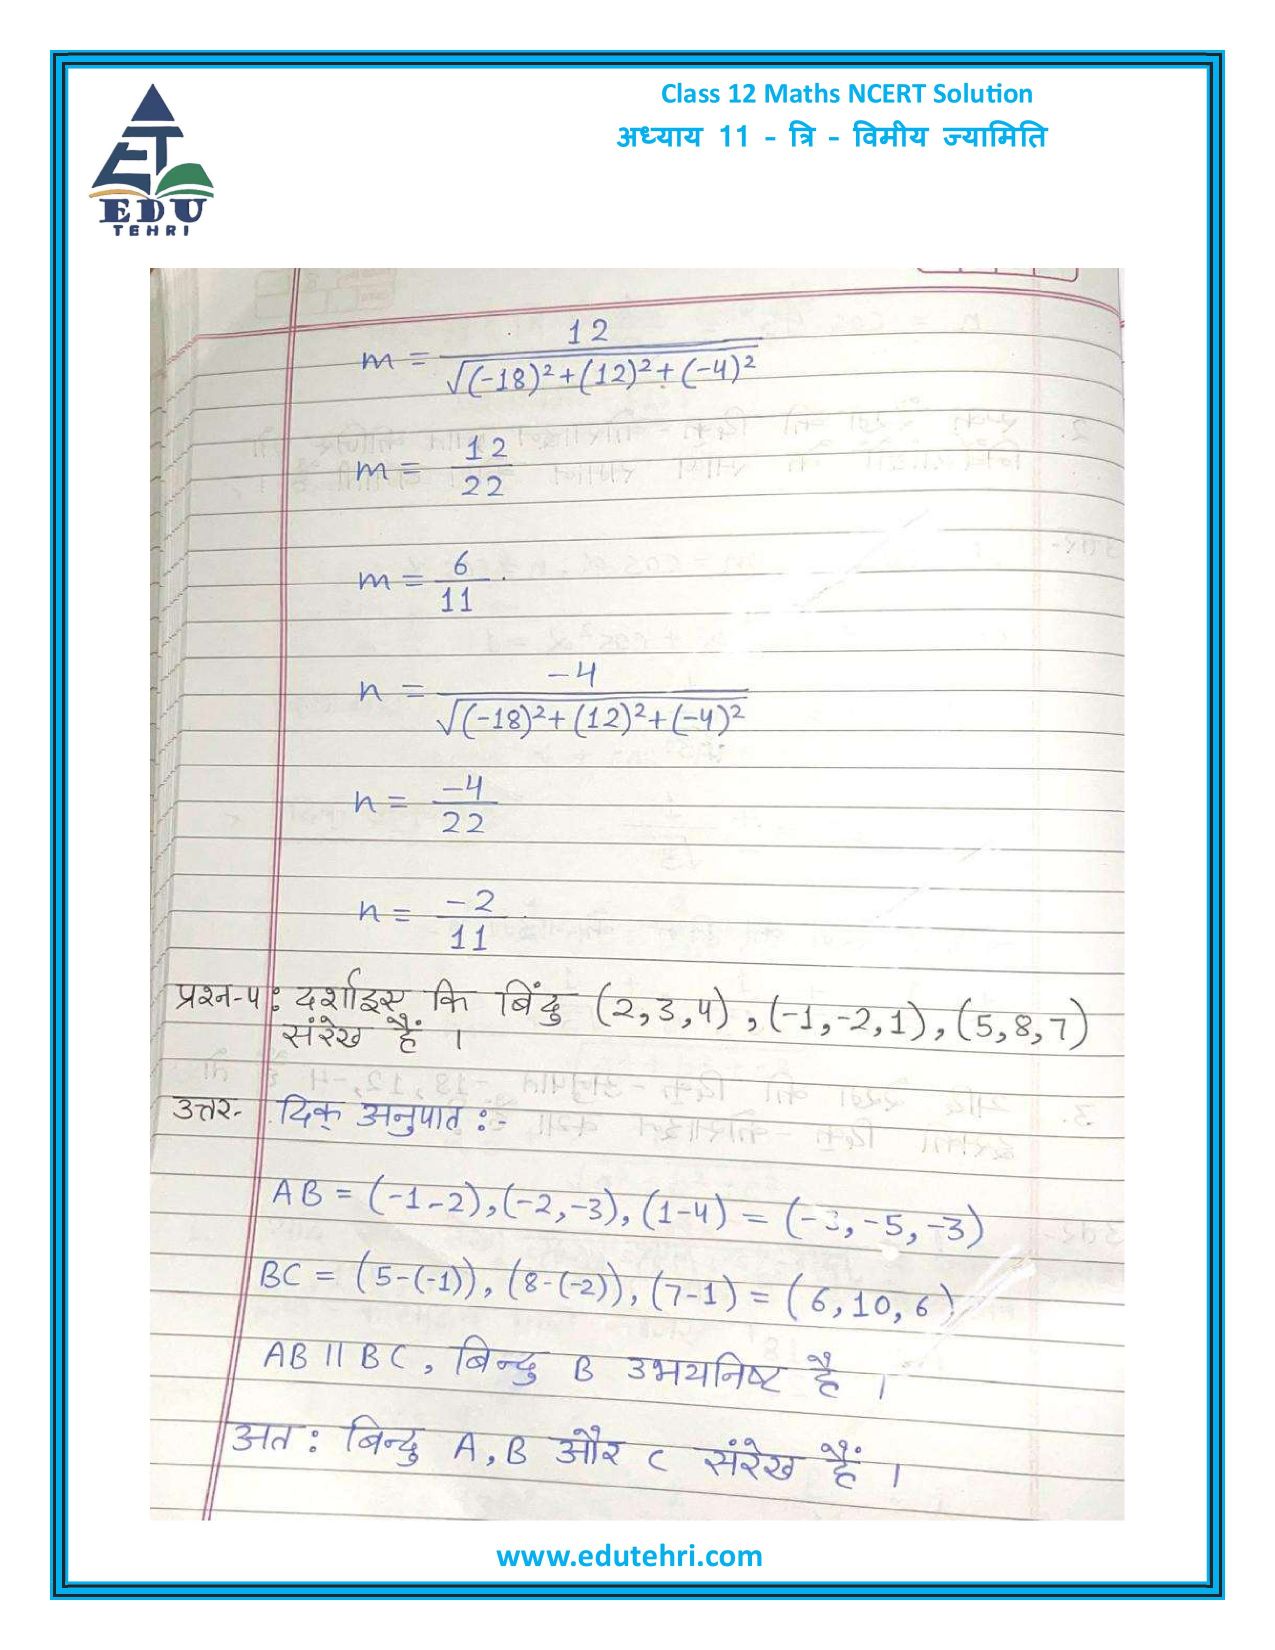 Class 12 Maths NCERT Solution
अध्याय 11 - त्रि - विमीय ज्यामिति
ET
EDU
TEHRI
m = 12 / √(-18)²+(12)²+(-4)²
m = 12 / 22
m = 6 / 11
n = -4 / √(-18)²+(12)²+(-4)²
n = -4 / 22
n = -2 / 11
प्रश्न-4: दर्शाइए कि बिंदु (2,3,4), (-1,-2,1), (5,8,7)
संरेख हैं ।
उत्तर- दिक् अनुपात :-
AB = (-1-2), (-2,-3), (1-4) = (-3,-5,-3)
BC = (5-(-1)), (8-(-2)), (7-1) = (6,10,6)
AB || BC, बिन्दु B उभयनिष्ट है ।
अत: बिन्दु A, B और C संरेख हैं ।
www.edutehri.com